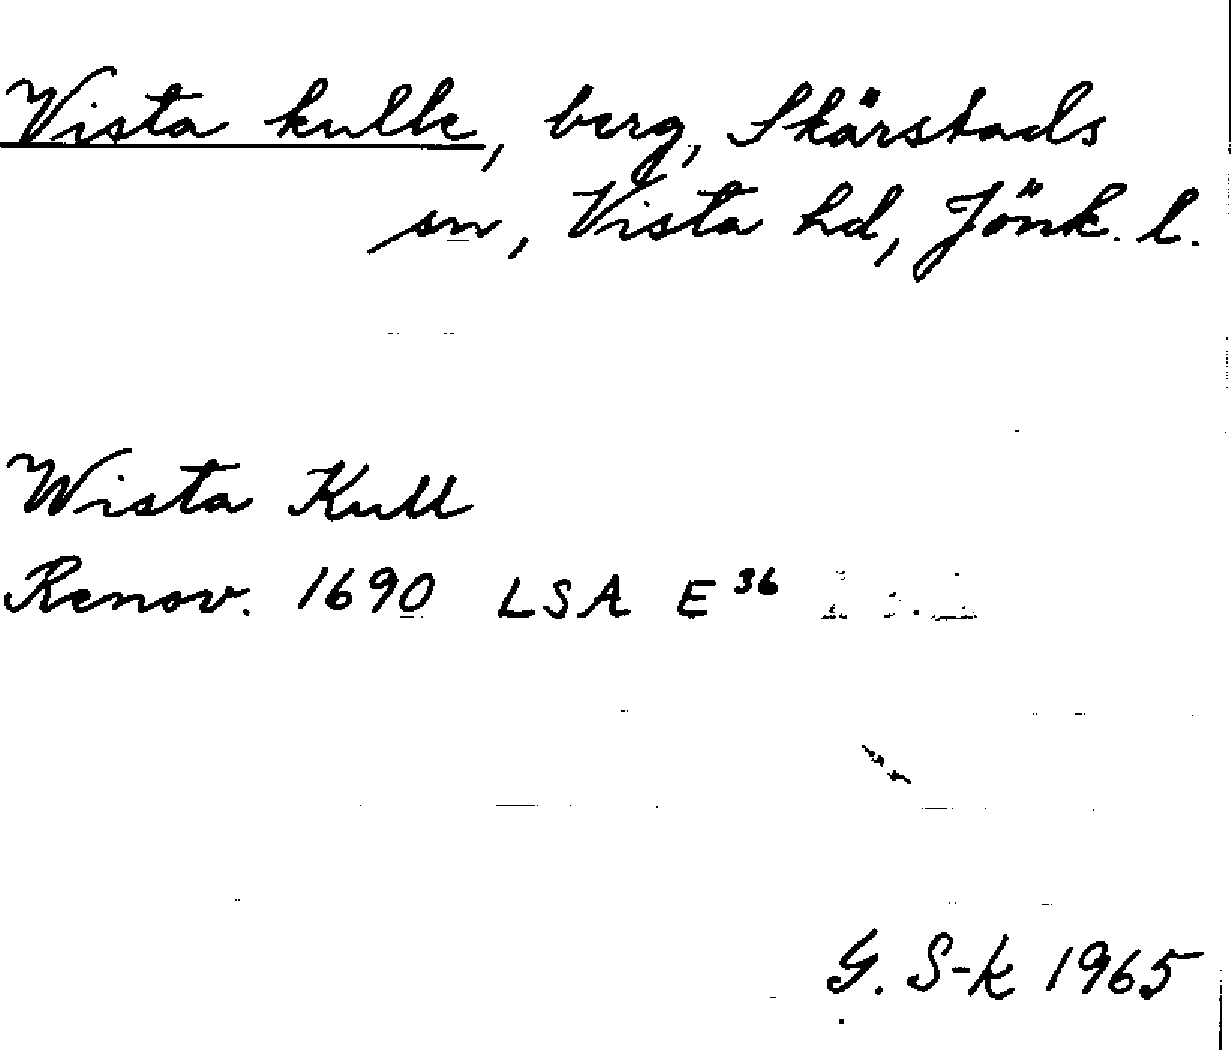 Vista kulle, berg, Skärstads
sn, Vista hd, Jönk. l.
Wista Kull
Renov. 1690 LSA E³⁶
G. S-k 1965